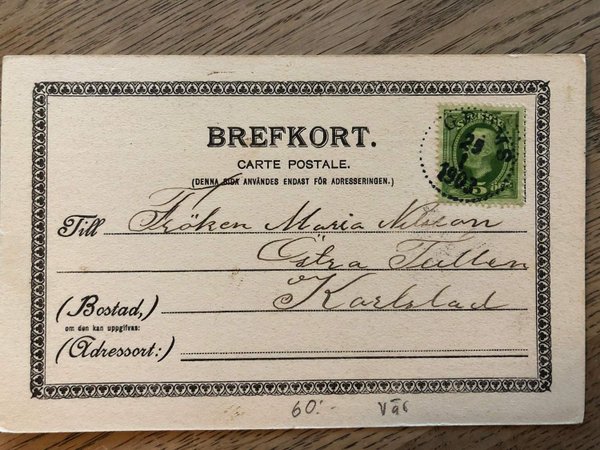 BREFKORT.
CARTE POSTALE.
(DENNA SIDA ANVÄNDES ENDAST FÖR ADRESSERINGEN.)
Till Fröken Maria Nilsson
Östra Tullen
Karlstad
(Bostad,)
om den kan uppgifvas:
(Adressort:)
29
5
60:- Vär